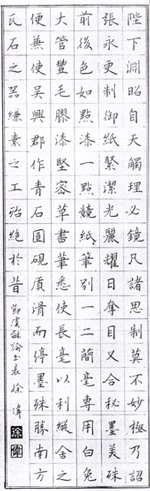 陛下淵昭自天觸理必鏡凡諸思制莫不妙極乃詔
張永更制御紙緊潔光麗耀日奪目又合秘墨美殊
前後色如點漆一點竟紙筆則一二簡毫專用白兔
大管豐毛膠漆堅密草書筆悉使長毫以利縱舍之
便兼使吳興郡作青石圓硯質滑而停墨殊勝南方
瓦石之器縑素之工殆絕於昔
節虞龢論書表 徐偉